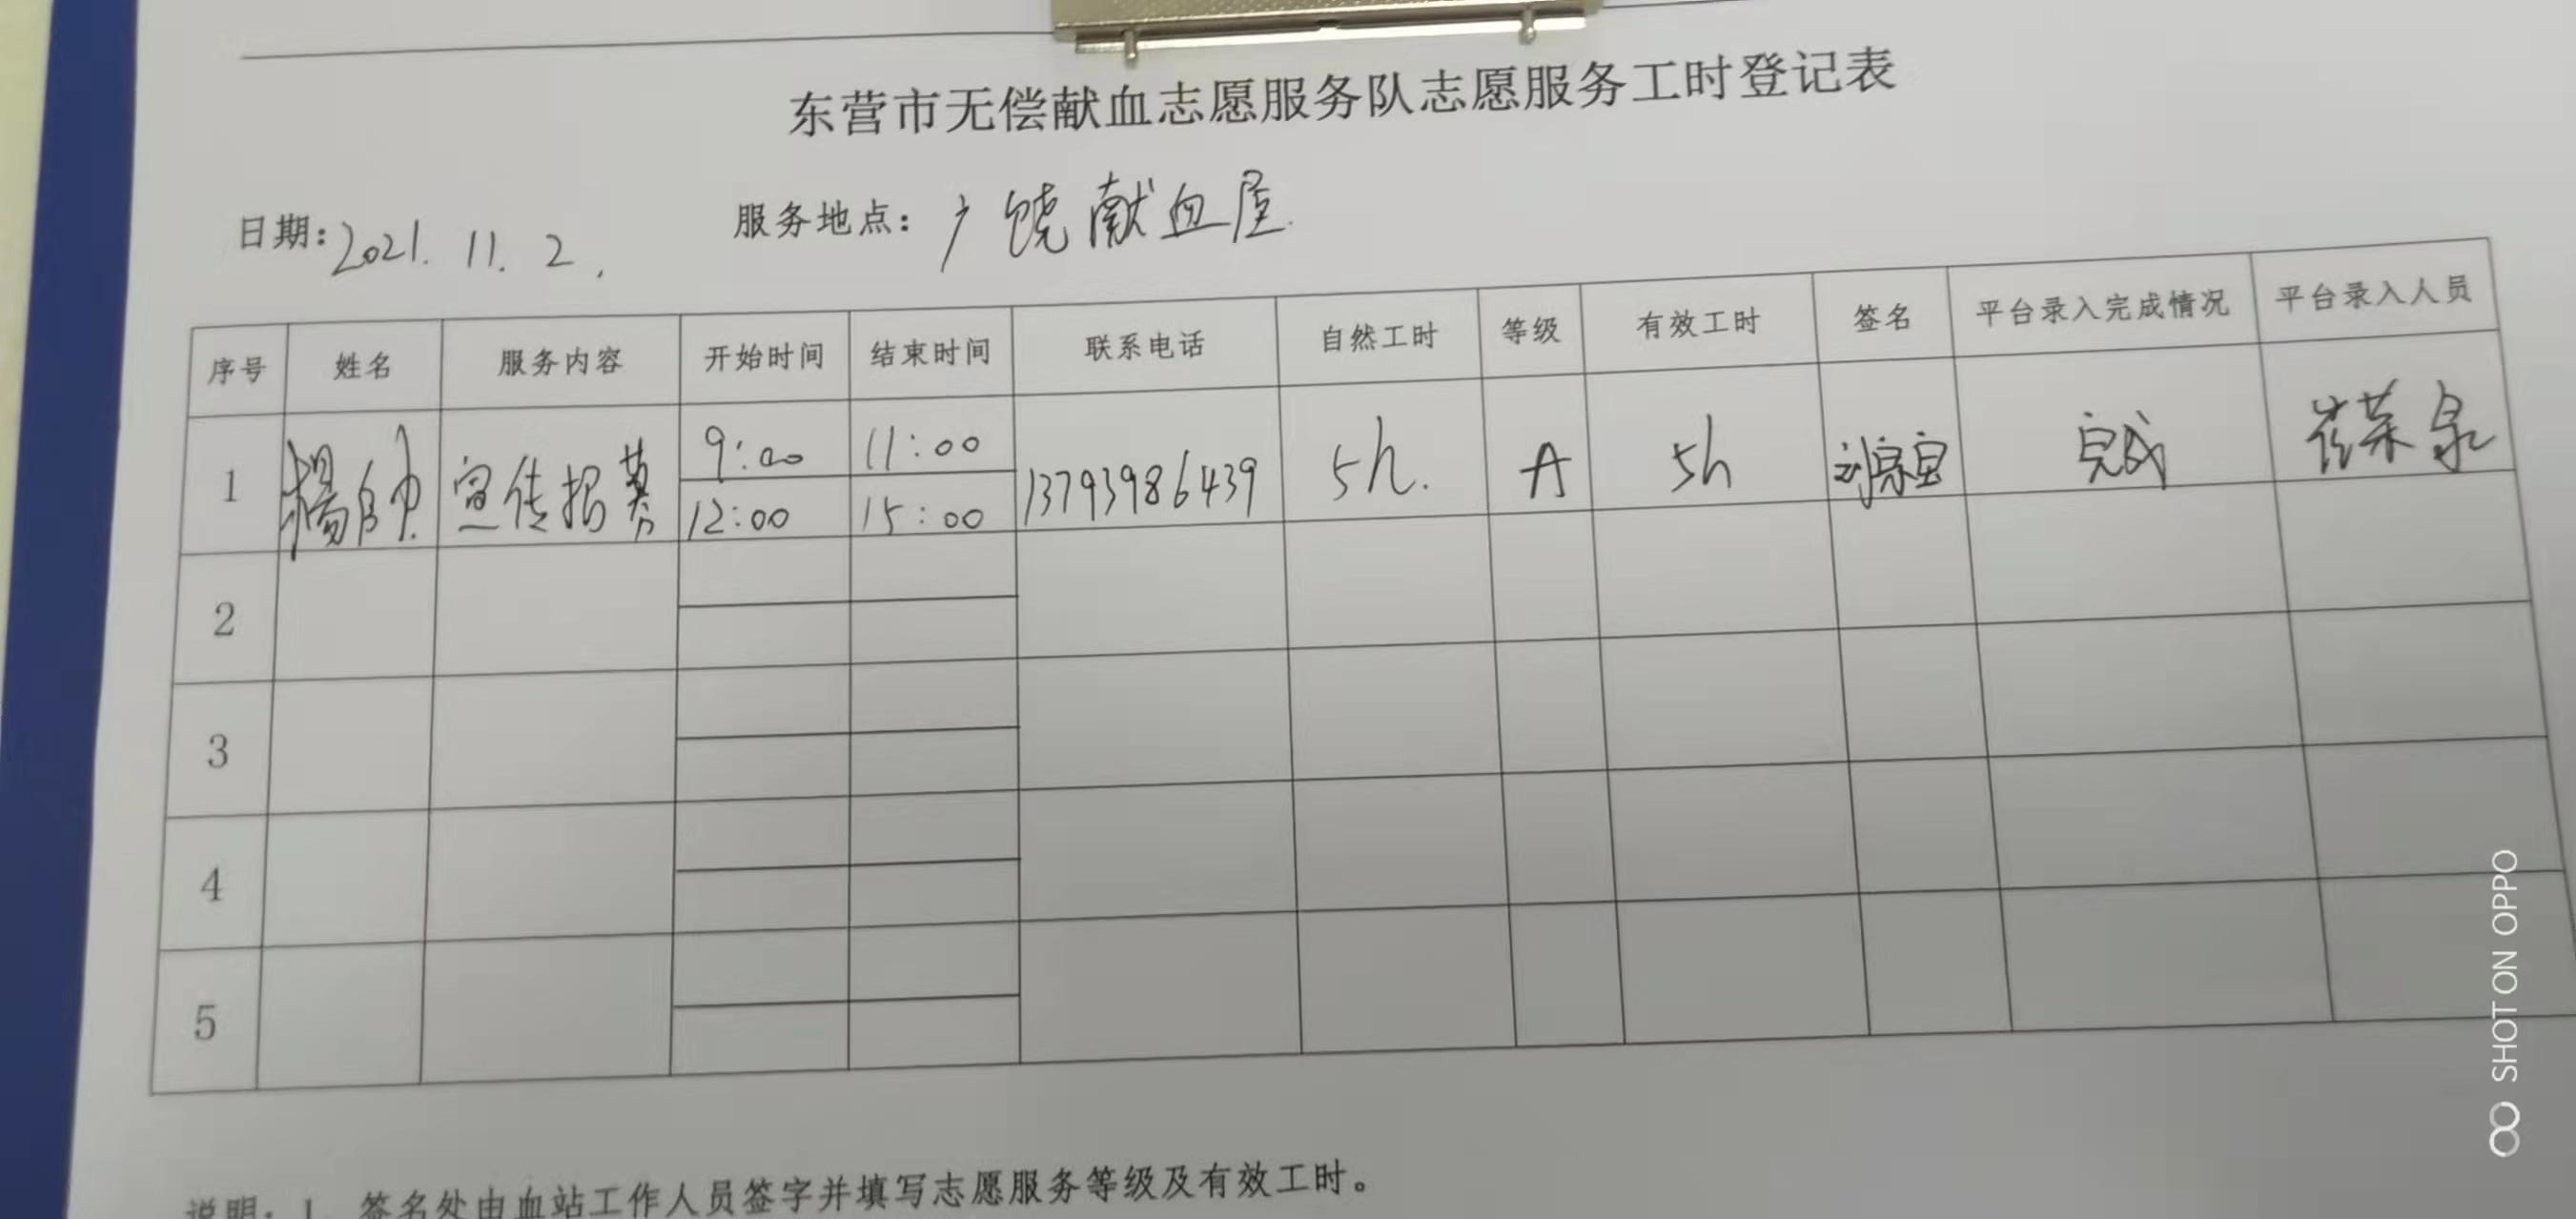 东营市无偿献血志愿服务队志愿服务工时登记表
日期：2021.11.2. 服务地点：广饶献血屋
序号 姓名 服务内容 开始时间 结束时间 联系电话 自然工时 等级 有效工时 签名 平台录入完成情况 平台录入人员
1 楊帅 宣传招募 9:00 11:00 13793986439 5h. A 5h 完成
12:00 15:00
2
3
4
5
说明：1、签名处由血站工作人员签字并填写志愿服务等级及有效工时。
SHOT ON OPPO